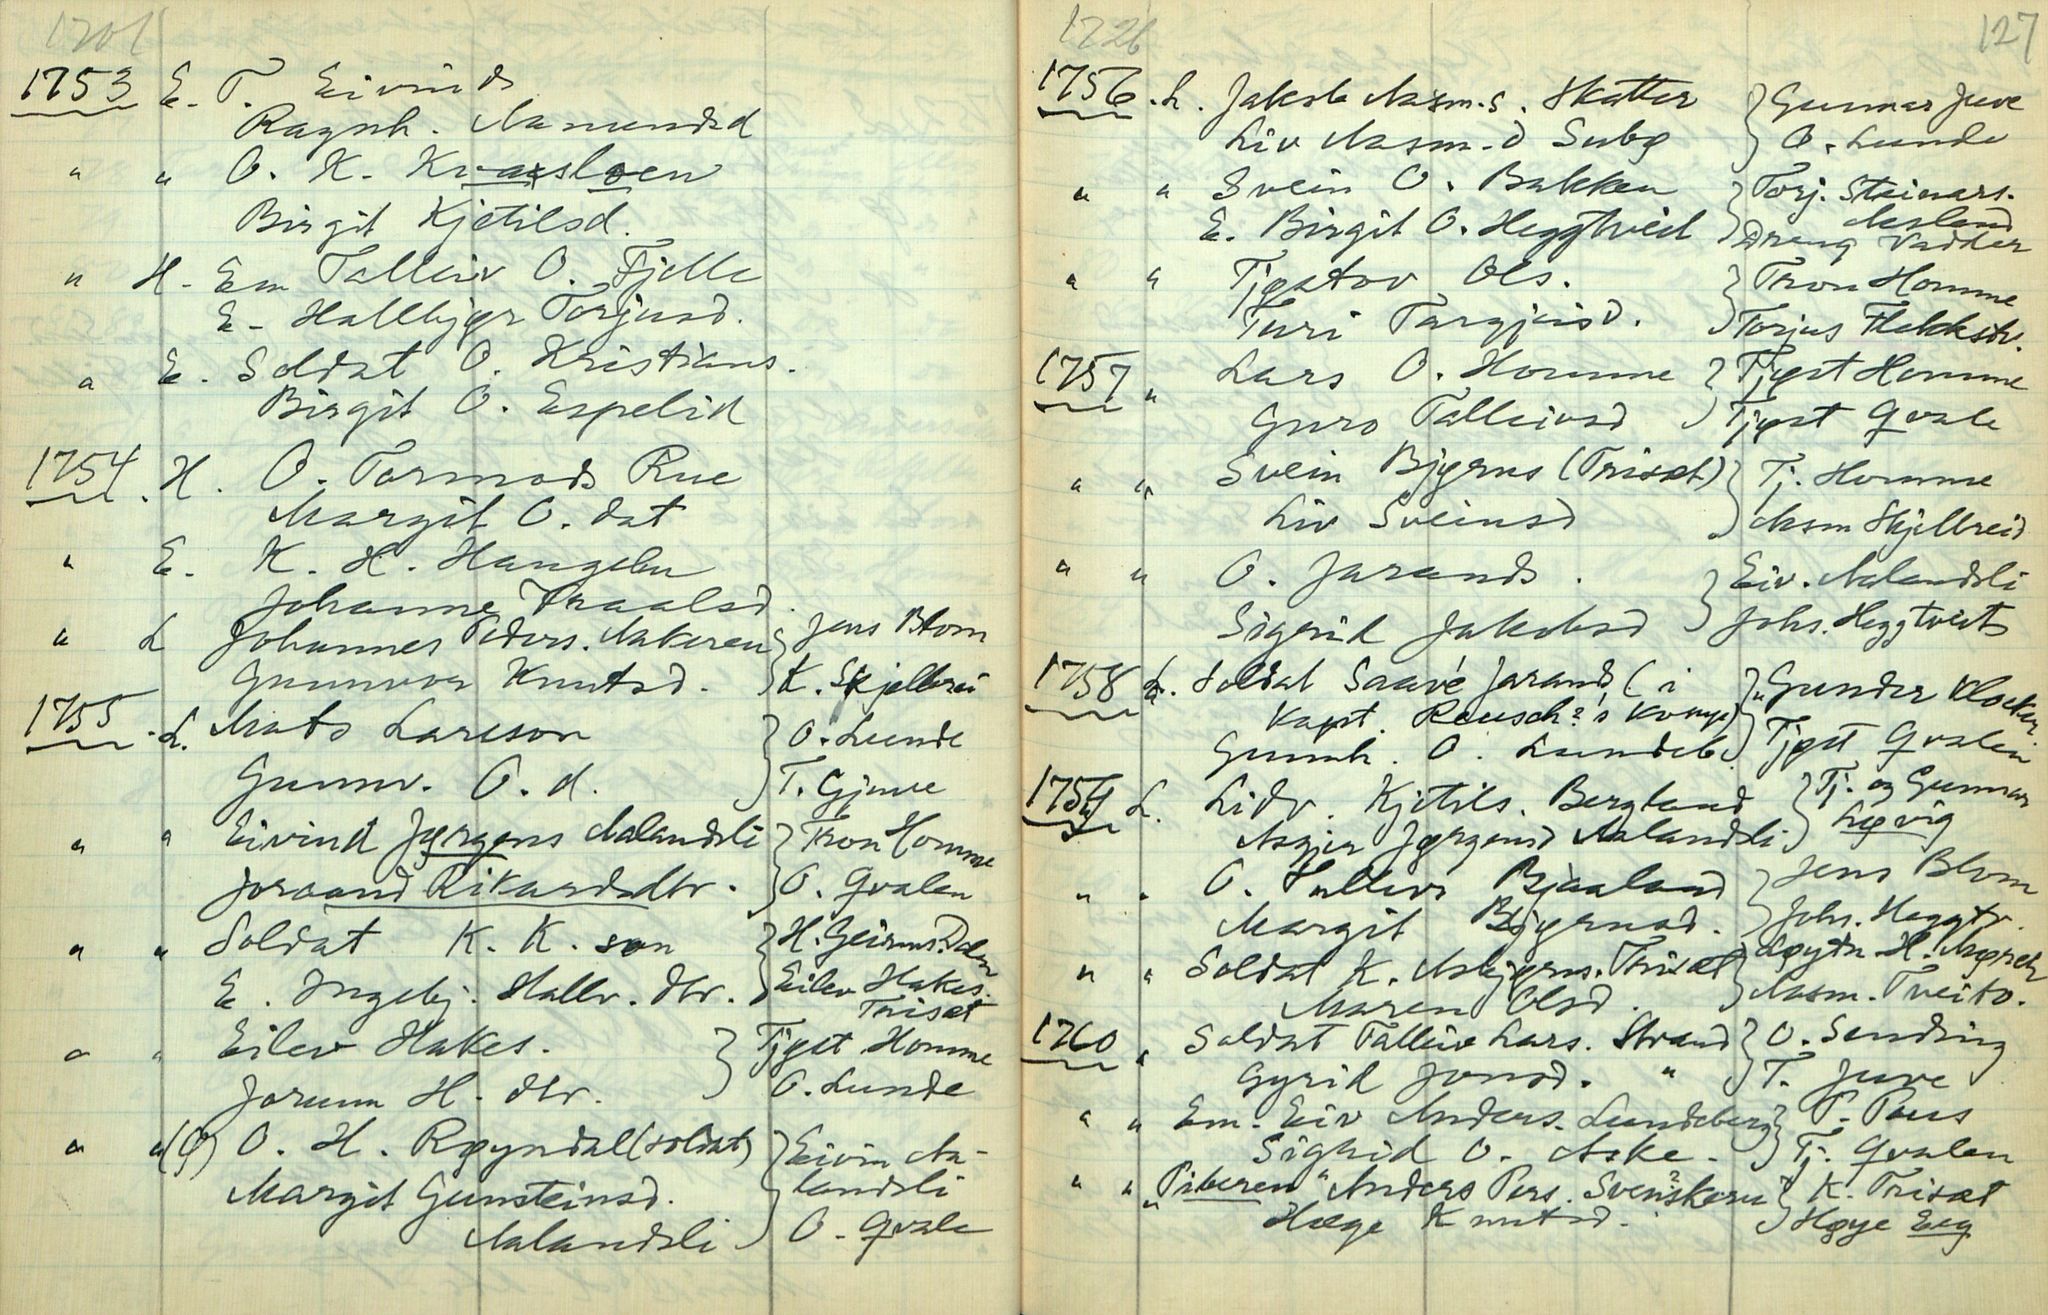 1753 E. T. Eivinds
Ragnh. Aamundsd
" " O. K. Kvasloen
Birgit Kjetilsd.
" H. Em Talleiv O. Fjelle
E. Hallbjør Torjusd.
" E. Soldat O. Kristians.
Birgit O. Espelid
1754. H. O. Tormods Rue
Margit O. dat
" E. K. H. Haugebu
Johanne Traalsd.
" L Johannes Peders. Aakeren } Jens Blom
Gunnvor Knutsd. K. Skjelbrei
1755. L. Mats Larsson } O. Lunde
Gunnv. O. d. T. Gjuve
" " Eivind Jørgens Aalandsli } Tron Homme
Joraand Rikardsdtr. O. Qvalen
" " Soldat K. K. son } H. Geirms. Dalen
E. Ingebj. Hallv. dtr. Eilev Hakes.
Trisæt
" " Eilev Hakes. } Tjøst Homme
Jorunn H. dtr. O. Lunde
" "(G) O. H. Røyndal (soldat) } Eivin Aa-
Margit Gunsteinsd. landsli
Aalandsli O. Qvale
1226 127
1756. L. Jakob Aasm.s. Skatter } Gunnar Juve
Liv Aasm.d Subø O. Lunde
" " Svein O. Bakken } Torj. Steinars.
Aasland
E. Birgit O. Heggtveit Dreng Vadder
" " Tjøstov Ols. } Tron Homme
Turi Targjeisd. Torjus Flekkstv.
1757 " Lars O. Homme } Tjøst Homme
Guro Talleivsd Tjøst Qvale
" " Svein Bjørns (Trisæt) } Tj. Homme
Liv Sveinsd Aasm Skjelbreid
" " O. Jarands. } Eiv. Aalandsli
Sigrid Jakobsd Johs. Heggtveit
1758 L. Soldat Saavé Jarands (i } Gunder Klocker
Kapt. Reusch?'s komp) Tjøst Qvalen
Gunnh. O. Lundeb.
1759 L. Lidv. Kjetils. Bergland } Tj. og Gunnar
Asgjer Jørgensd Aalandsli Løvig
" " O. Halvors Bjaaland } Jens Blom
Margit Bjørnsd. Johs. Heggtv.
" " Soldat K. Asbjørns. Trisæt } Løytn. H.
Maren Olsd. Aasm. Tveito.
1760 " Soldat Talleiv Lars. Strand } O. Sundring
Gyrid Jonsd. " T. Juve
" " Em. Eiv Anders. Lundeberg } P. Paus
Sigrid O. Aske. Tj. Qvalen
" " "Piberen" Anders Pers. Svenskeru? } K. Trisæt
Hæge Knutsd. Høye Eeg